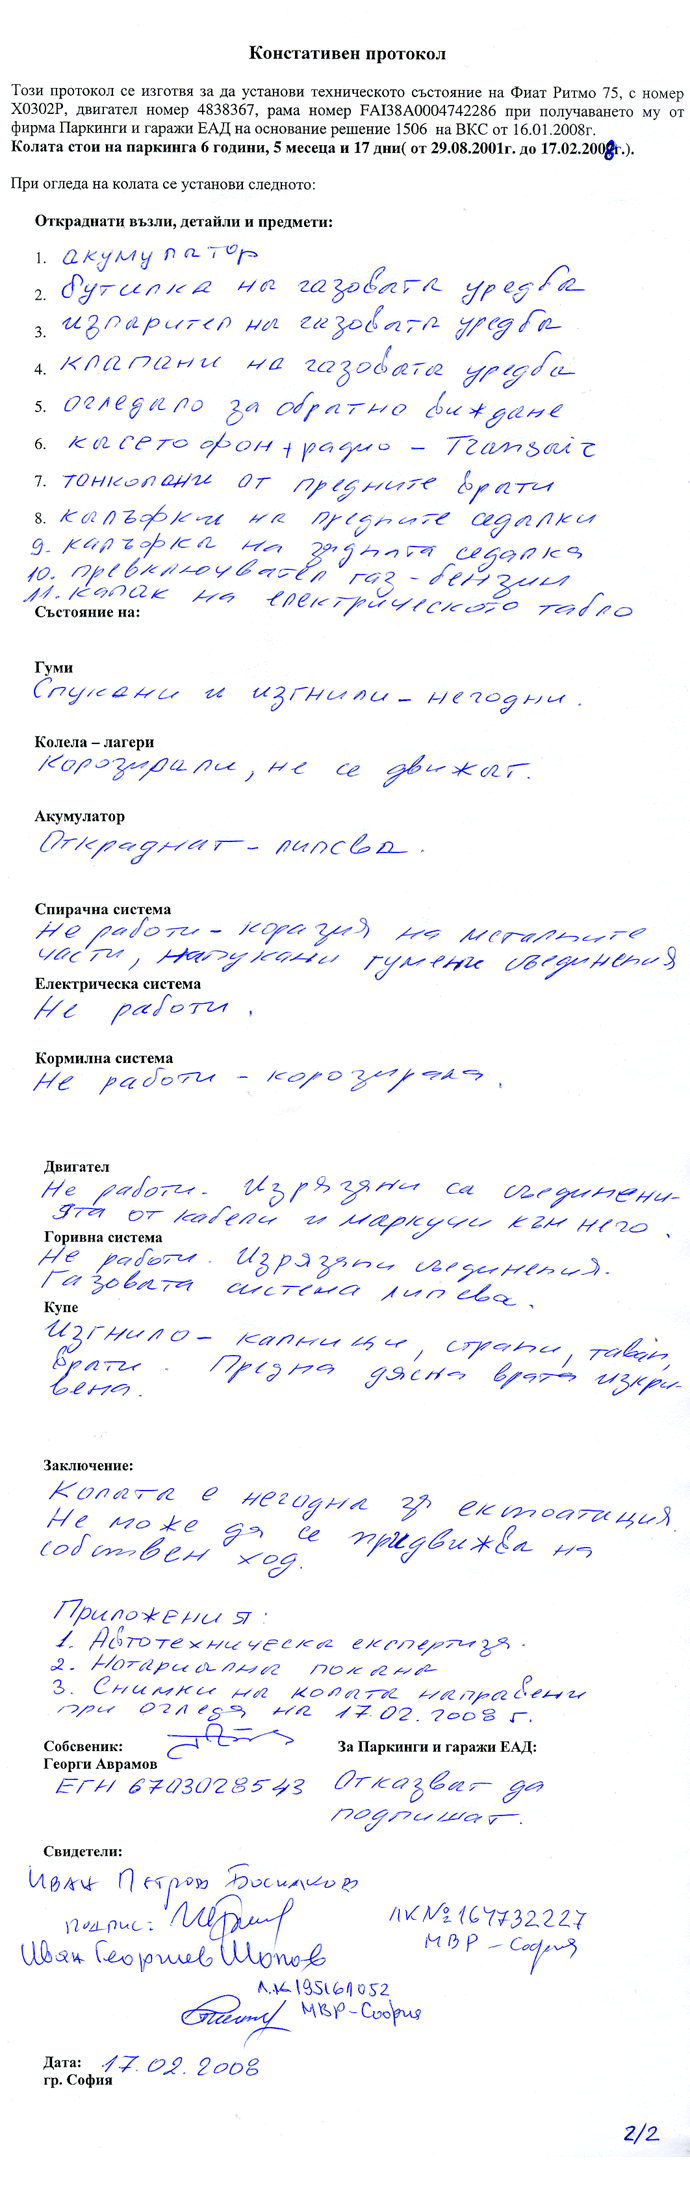 Констативен протокол
Този протокол се изготвя за да установи техническото състояние на Фиат Ритмо 75, с номер
Х0302Р, двигател номер 4838367, рама номер FAI38A0004742286 при получаването му от
фирма Паркинги и гаражи ЕАД на основание решение 1506 на ВКС от 16.01.2008г.
Колата стои на паркинга 6 години, 5 месеца и 17 дни( от 29.08.2001г. до 17.02.2008г.).
При огледа на колата се установи следното:
Откраднати възли, детайли и предмети:
1. акумулатор
2. бутилка на газовата уредба
3. изпарител на газовата уредба
4. клапани на газовата уредба
5. огледало за обратно виждане
6. касетофон + радио - Transair
7. тонколани от предните врати
8. калъфки на предните седалки
9. калъфка на задната седалка
10. превключвател газ - бензин
11. капак на електрическото табло
Състояние на:
Гуми
Спукани и изгнили - негодни.
Колела – лагери
Корозирали, не се движат.
Акумулатор
Откраднат - липсва.
Спирачна система
Не работи - корозия на металните
части, напукани гумени съединения
Електрическа система
Не работи.
Кормилна система
Не работи - корозирала.
Двигател
Не работи. Изрязани са съединени-
ята от кабели и маркучи към него.
Горивна система
Не работи. Изрязани съединения.
Газовата система липсва.
Купе
Изгнило - калници, страни, таван,
врати. Предна дясна врата изкри-
вена.
Заключение:
Колата е негодна за експоатиция.
Не може да се придвижва на
собствен ход.
Приложения:
1. Автотехническа експертиза.
2. Нотариална покана
3. Снимки на колата направени
при огледа на 17.02.2008 г.
Собсвеник: За Паркинги и гаражи ЕАД:
Георги Аврамов
ЕГН 6703028543 Отказват да
подпишат.
Свидетели:
Иван Петров Босилков
подпис: ЛК № 164732227
МВР - София
Иван Георгиев Шопов
Л.К 195161052
МВР - София
Дата: 17.02.2008
гр. София
2/2